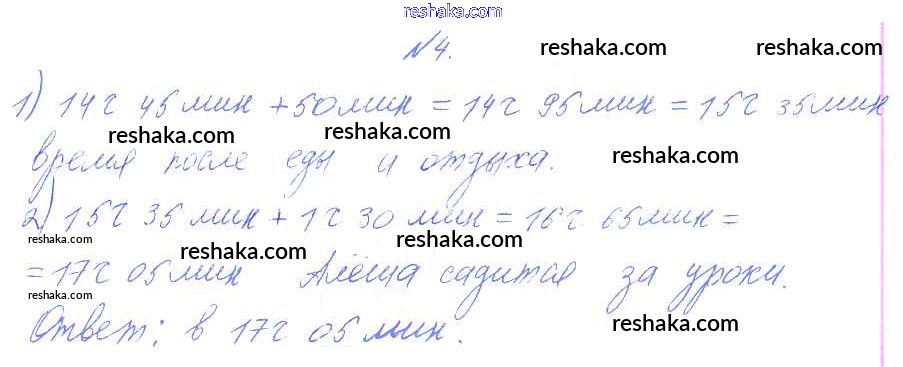 reshaka.com
№4. reshaka.com reshaka.com
1) 14 ч 45 мин + 50 мин = 14 ч 95 мин = 15 ч 35 мин
reshaka.com reshaka.com
время после еды и отдыха. reshaka.com
2) 15 ч 35 мин + 1 ч 30 мин = 16 ч 65 мин =
reshaka.com reshaka.com reshaka.com
= 17 ч 05 мин Алёша садится за уроки.
reshaka.com reshaka.com
Ответ: в 17 ч 05 мин. reshaka.com